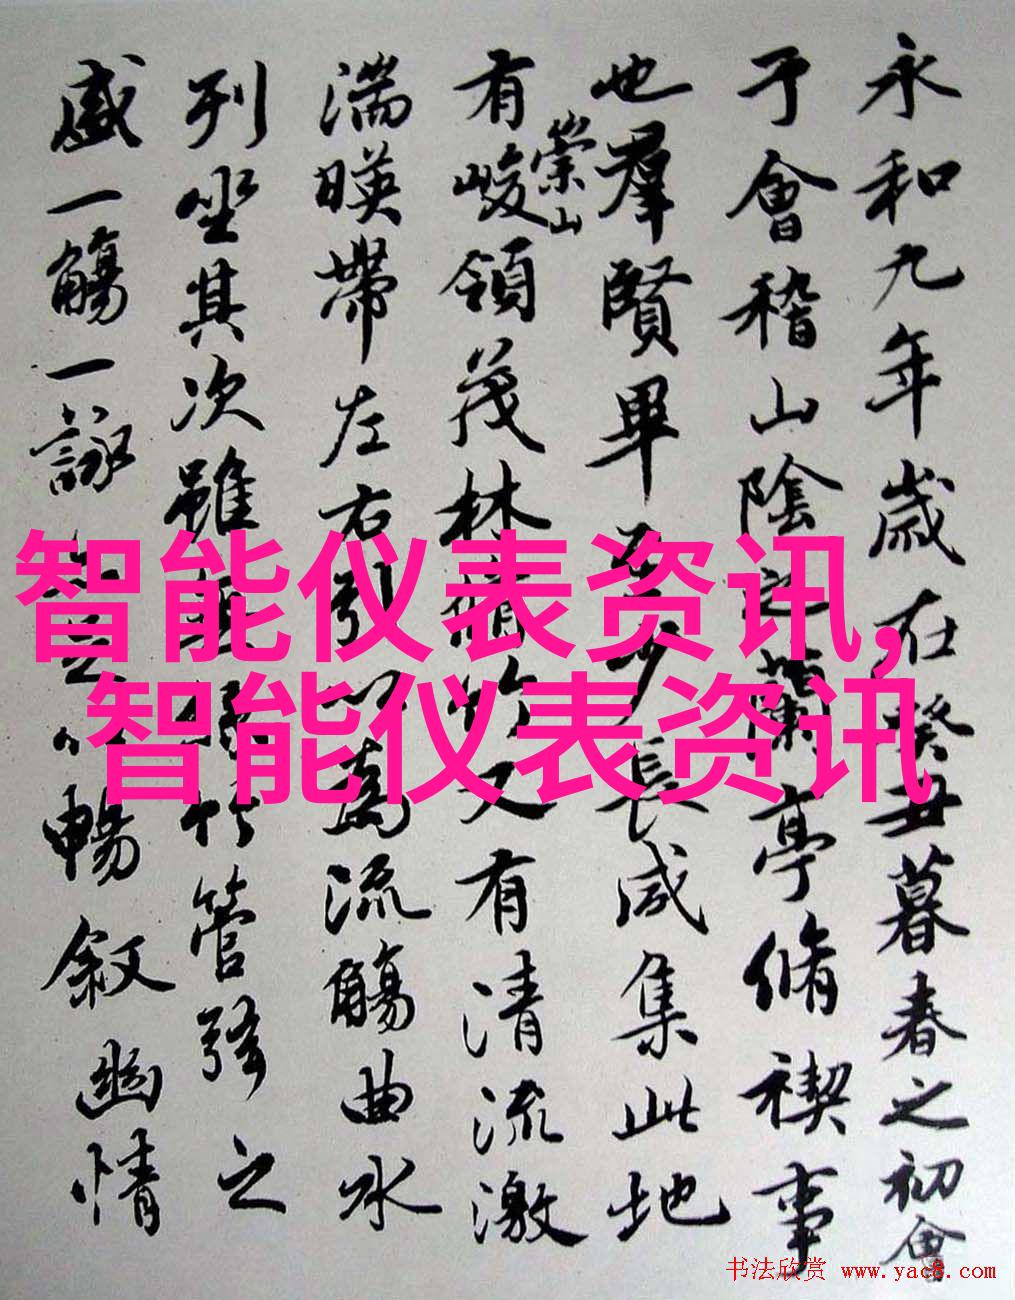 永和九年歲在癸丑暮春之初會
于會稽山陰之蘭亭脩禊事
也羣賢畢至少長咸集此地
有崇山峻領茂林脩竹又有清流激
湍暎帶左右引以為流觴曲水
列坐其次雖無絲竹管弦之
盛一觴一詠亦足以暢敘幽情
智能仪表资讯,
智能仪表资讯
书法欣赏 www.yac8.com